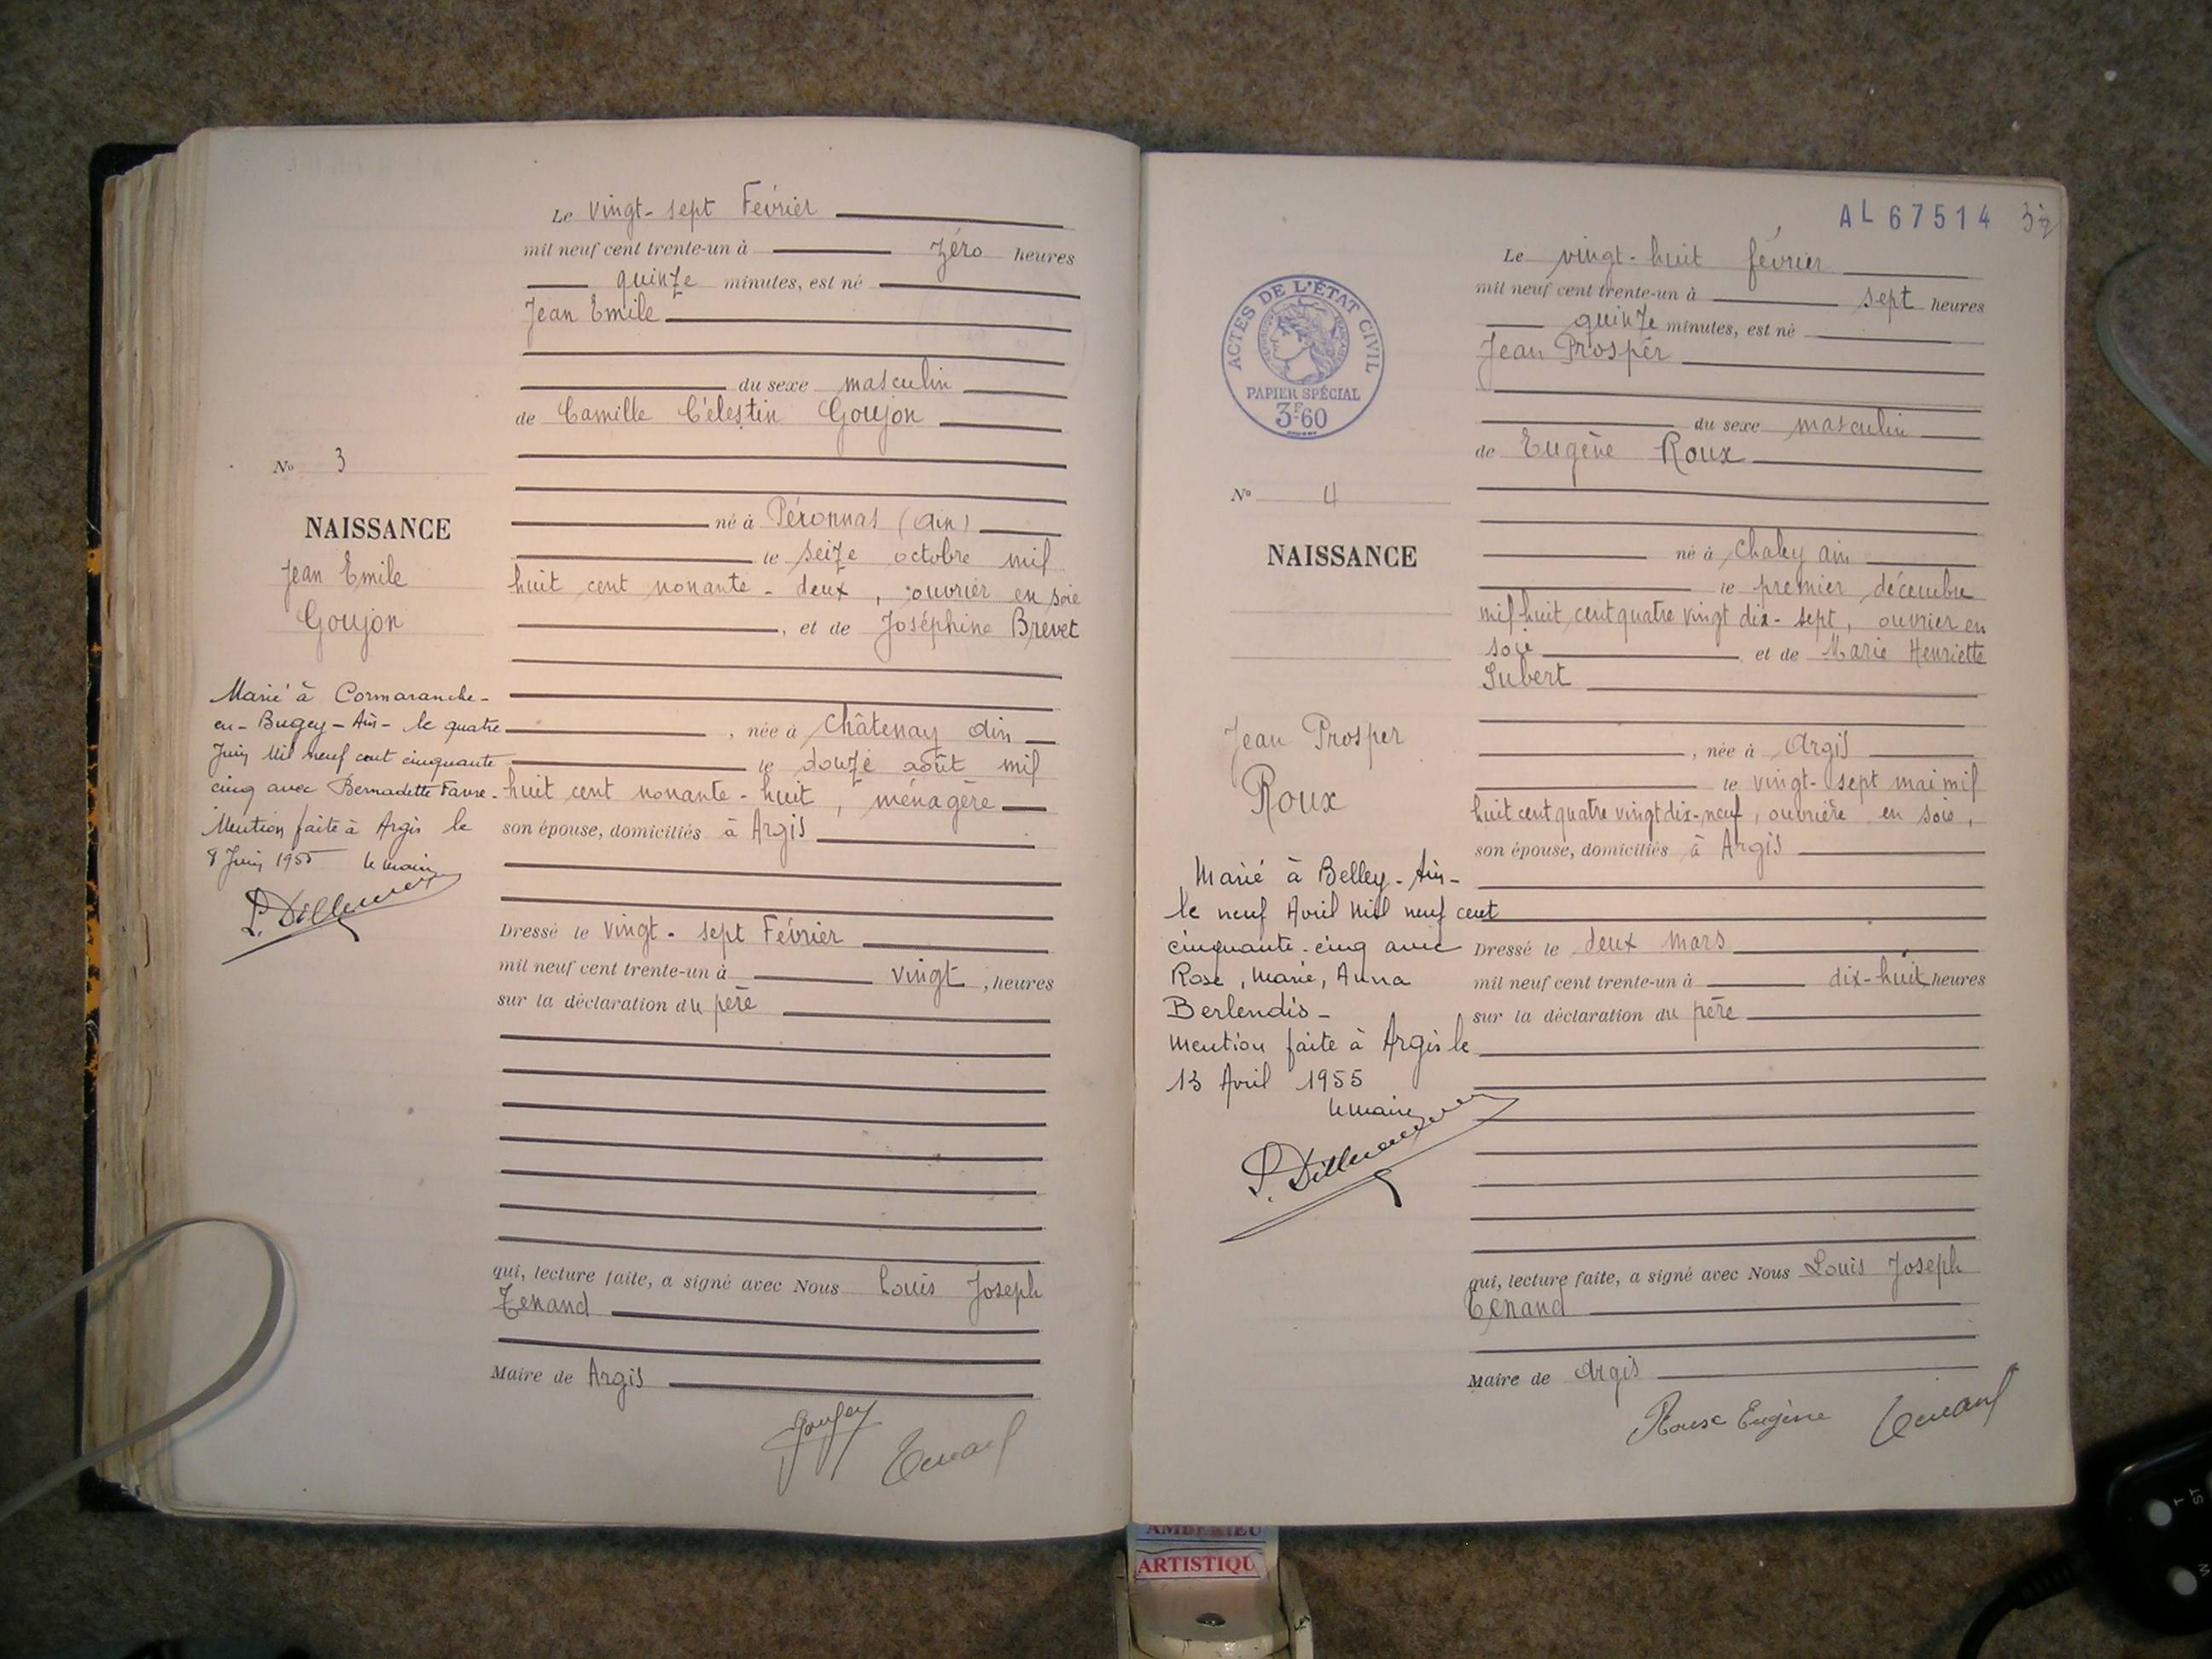 Le vingt-sept Février
mil neuf cent trente-un à zéro heures
quinze minutes, est né
Jean Emile
du sexe masculin
de Camille Célestin Goujon
né à Péronnas (Ain)
le seize octobre mil
huit cent nonante-deux, ouvrier en soie
, et de Joséphine Brevet
, née à Châtenay Ain
le douze août mil
huit cent nonante-huit, ménagère
son épouse, domiciliés à Argis
Dressé le vingt-sept Février
mil neuf cent trente-un à vingt, heures
sur la déclaration du père
qui, lecture faite, a signé avec Nous Louis Joseph
Tenand
Maire de Argis
Goujon
Tenand
No 3
NAISSANCE
Jean Emile
Goujon
Marié à Cormaranche-
en-Bugey-Ain- le quatre
Juin Mil neuf cent cinquante
cinq avec Bernadette Favre-
Mention faite à Argis le
8 Juin 1955 le maire
AL 67514
32
ACTES DE L'ÉTAT CIVIL
PAPIER SPÉCIAL
3F60
Le vingt-huit février
mil neuf cent trente-un à sept heures
quinze minutes, est né
Jean Prosper
du sexe masculin
de Eugène Roux
né à Chaley ain
le premier décembre
mil huit cent quatre vingt dix-sept, ouvrier en
soie et de Marie Henriette
Jubert
, née à Argis
le vingt-sept mai mil
huit cent quatre vingt dix-neuf, ouvrière en soie,
son épouse, domiciliés à Argis
Dressé le deux mars
mil neuf cent trente-un à dix-huit heures
sur la déclaration du père
qui, lecture faite, a signé avec Nous Louis Joseph
Tenand
Maire de Argis
Roux Eugène Tenand
No 4
NAISSANCE
Jean Prosper
Roux
Marié à Belley-Ain-
le neuf Avril Mil neuf cent
cinquante-cinq avec
Rose, Marie, Anna
Berlendis-
Mention faite à Argis le
13 Avril 1955
le maire
AMBERIEU
ARTISTIQU